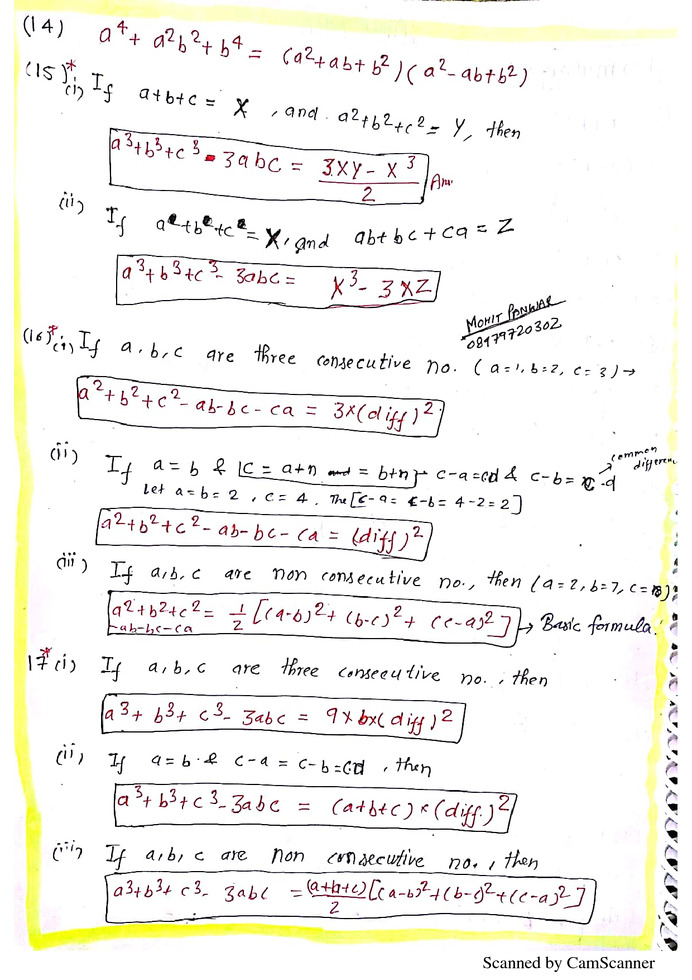 (14) a⁴ + a²b² + b⁴ = (a²+ab+b²)(a²-ab+b²)
(15)* (i) If a+b+c = X , and a²+b²+c² = Y, then
a³+b³+c³ - 3abc = (3XY - X³)/2 Ans
(ii) If a²+b²+c² = X, and ab+bc+ca = Z
a³+b³+c³ - 3abc = X³ - 3XZ
MOHIT PANWAR
08979720302
(16)* (i) If a, b, c are three consecutive no. (a=1, b=2, c=3) →
a²+b²+c²-ab-bc-ca = 3×(diff)²
(ii) If a = b & c = a+n = b+n c-a=cd & c-b = c.d → common difference
Let a=b=2, c=4. The [c-a = c-b = 4-2=2]
a²+b²+c²-ab-bc-ca = (diff)²
(iii) If a,b,c are non consecutive no., then (a=2, b=7, c=
a²+b²+c² -ab-bc-ca = 1/2 [(a-b)² + (b-c)² + (c-a)²] → Basic formula.
17* (i) If a, b, c are three consecutive no., then
a³ + b³ + c³ - 3abc = 9×b×(diff)²
(ii) If a=b & c-a = c-b=cd , then
a³+b³+c³-3abc = (a+b+c)×(diff.)²
(iii) If a, b, c are non consecutive no., then
a³+b³+c³- 3abc = (a+b+c)/2 [(a-b)²+(b-c)²+(c-a)²]
Scanned by CamScanner